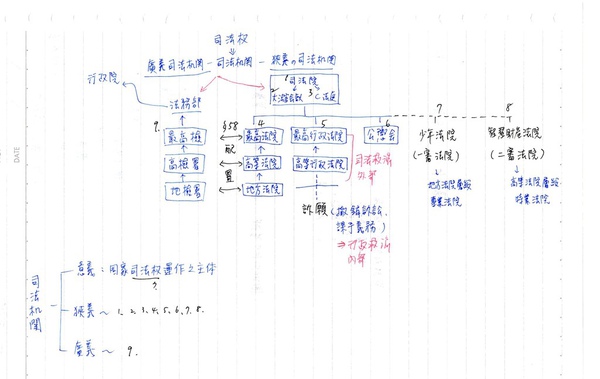 司法权
廣義司法机関 - 司法机関 - 狹義の司法机関
行政院
1司法院
2大法官會議 3C法庭
法務部
7
8
9.
最高檢
§58
4
最高法院
5
最高行政法院
6
公懲會
少年法院
(一審法院)
智慧財產法院
(二審法院)
配
高檢署
高等法院
高等行政法院
司法救済
外部
置
地檢署
地方法院
地方法院層級
專業法院
高等法院層級
專業法院
訴願(撤銷訴訟、
課予義務)
⇒行政救済
內部
司法机関
意義:国家司法权運作之主体
?
狹義~1、2、3、4、5、6、7、8.
廣義~ 9.
DATE